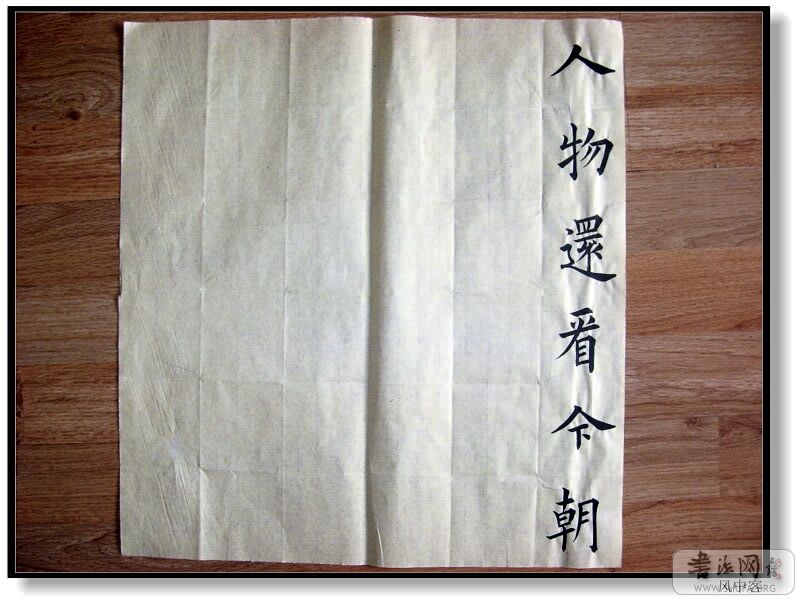 人物還看今朝
书法网
风中客